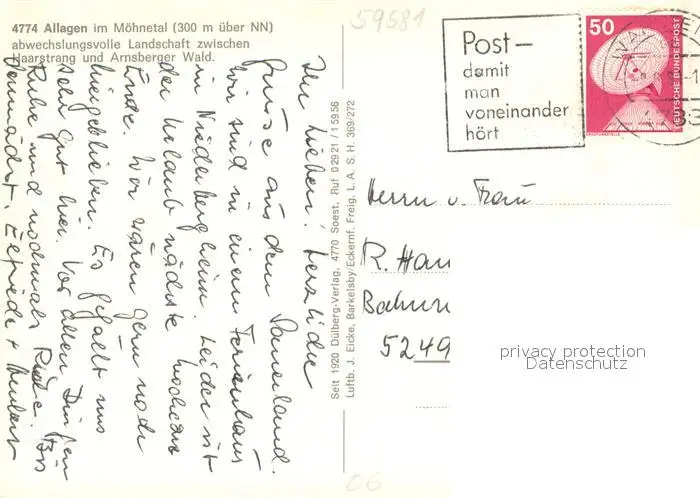 4774 Allagen im Möhnetal (300 m über NN)
abwechslungsvolle Landschaft zwischen
Haarstrang und Arnsberger Wald.
59581
Post-
damit
man
voneinander
hört
50
DEUTSCHE BUNDESPOST
Ihr Lieben! Herzliche
Grüsse aus dem Sauerland.
Wir sind in einem Ferienhaus
in Niederbergheim. Leider ist
der Urlaub nächste Woche zu
Ende. Wir wären gern noch
hiergeblieben. Es gefällt uns
sehr gut hier. Vor allen Dingen
Ruhe und nochmals Ruhe. Bis
demnächst, Elfriede +
Seit 1920 Dülberg-Verlag, 4770 Soest, Ruf 02921 / 15956
Luftb. J. Eicke, Barkelsby/Eckernf. Freig. L. A. S. H. 369/272
Herrn u. Frau
R. Han
5249
privacy protection
Datenschutz